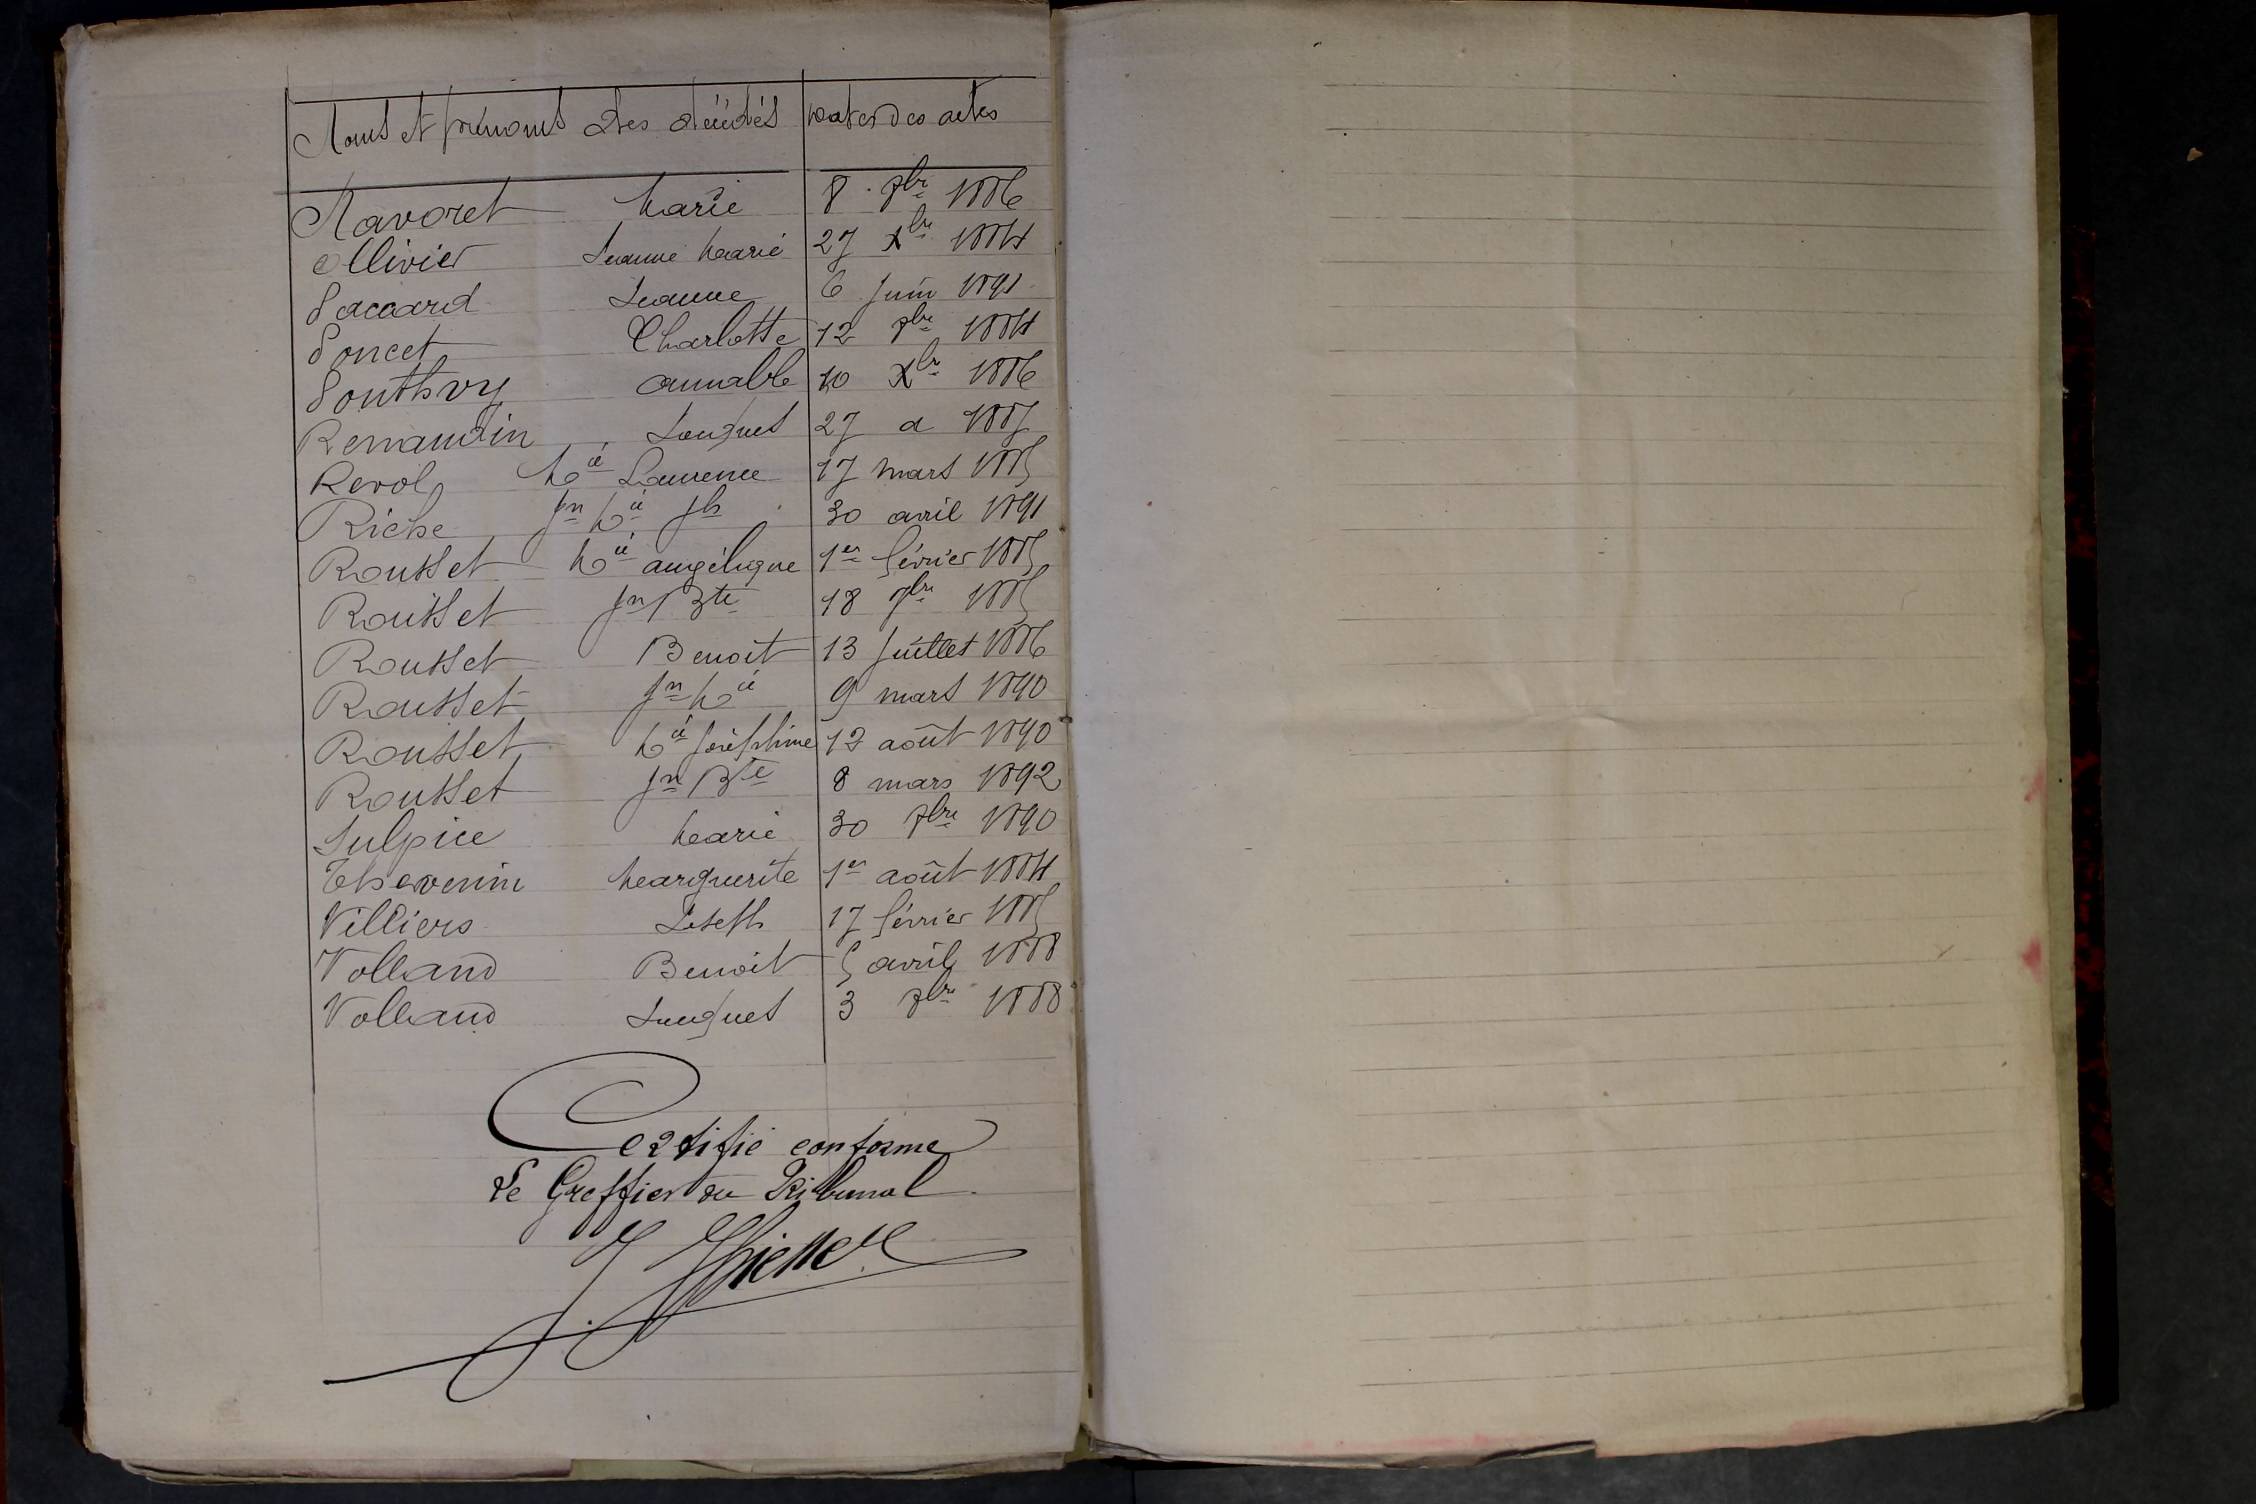 Noms et prénoms des décédés Dates des actes
Navoret Marie 8 7bre 1886
Ollivier Jeanne Marie 27 Xbre 1884
Paccard Jeanne 6 Juin 1891
Poncet Charlotte 12 7bre 1884
Pouthvy annable 10 Xbre 1886
Renaudin Jacques 27 d 1887
Revol Mie Laurence 17 mars 1885
Riche Jn Mie Jh 30 avril 1891
Rousset Mie angélique 1er février 1885
Rousset Jn Bte 18 7bre 1885
Rousset Benoit 13 Juillet 1886
Rousset Jn Mie 9 mars 1890
Rousset Mie Joséphine 12 août 1890
Rousset Jn Bte 8 mars 1892
Sulpice Marie 30 7bre 1890
Thevenin Marguerite 1er août 1884
Villiers Joseph 17 février 1885
Volland Benoit 5 avril 1888
Volland Jacques 3 7bre 1888
Certifié conforme
Le Greffier du Tribunal